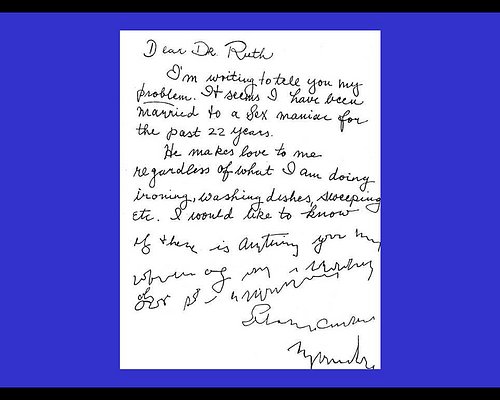 Dear Dr. Ruth
I'm writing to tell you my
problem. It seems I have been
married to a sex maniac for
the past 22 years.
He makes love to me
regardless of what I am doing
ironing, washing dishes, sweeping
etc. I would like to know
if there is anything you